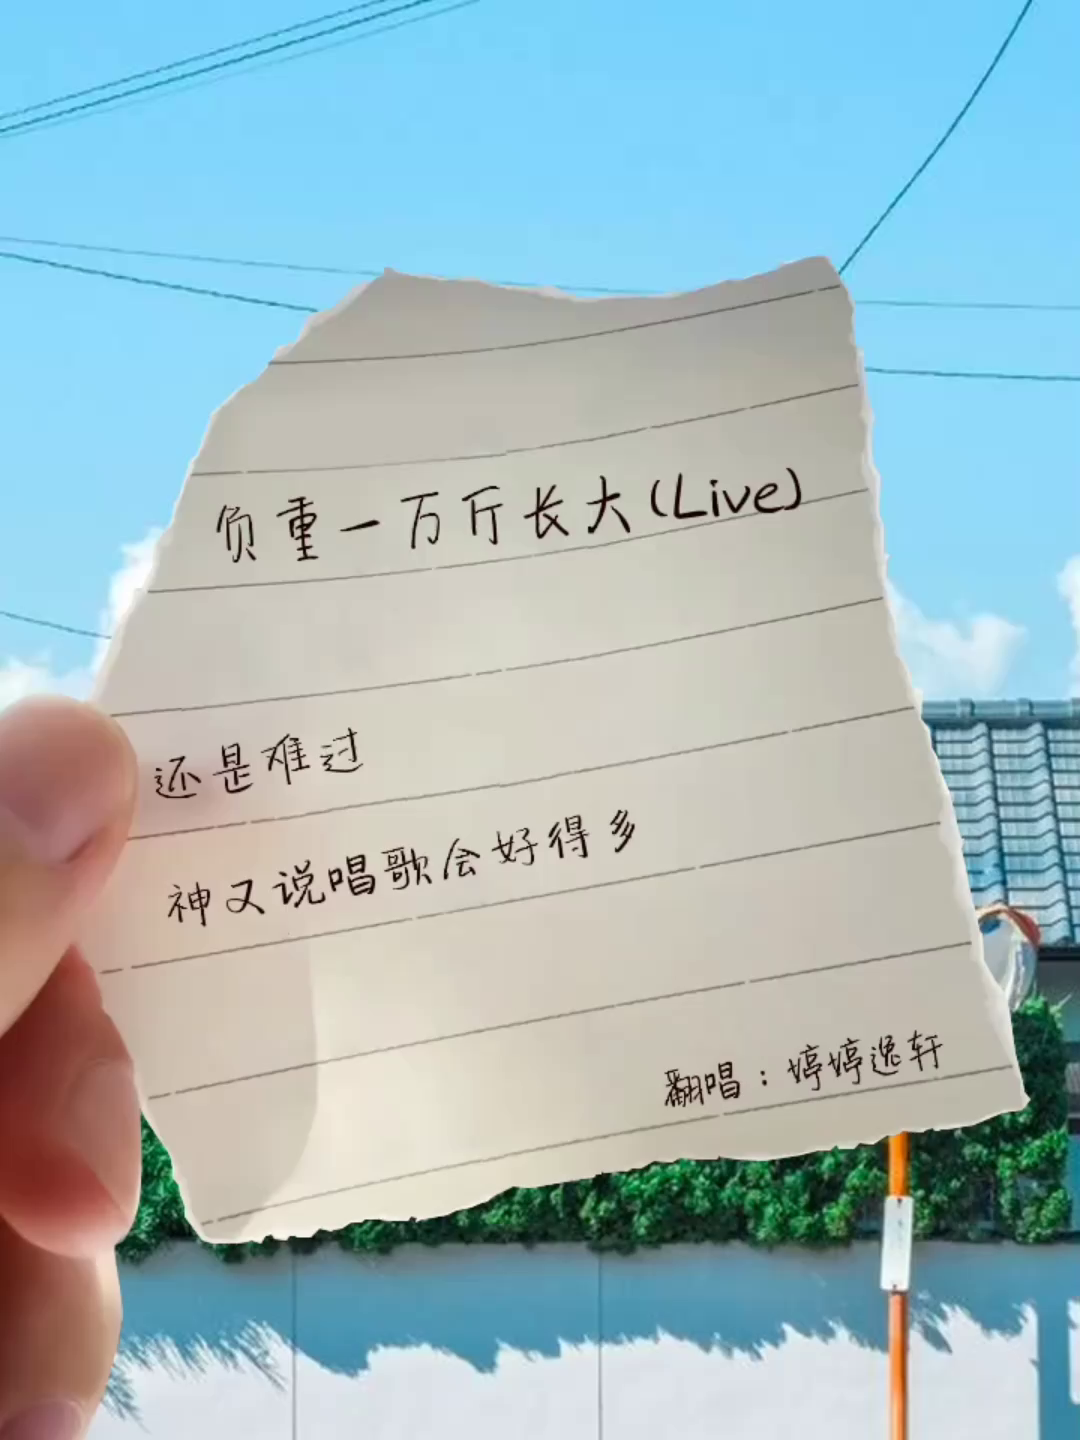 负重一万斤长大(Live)
还是难过
神又说唱歌会好得多
翻唱：婷婷逸轩